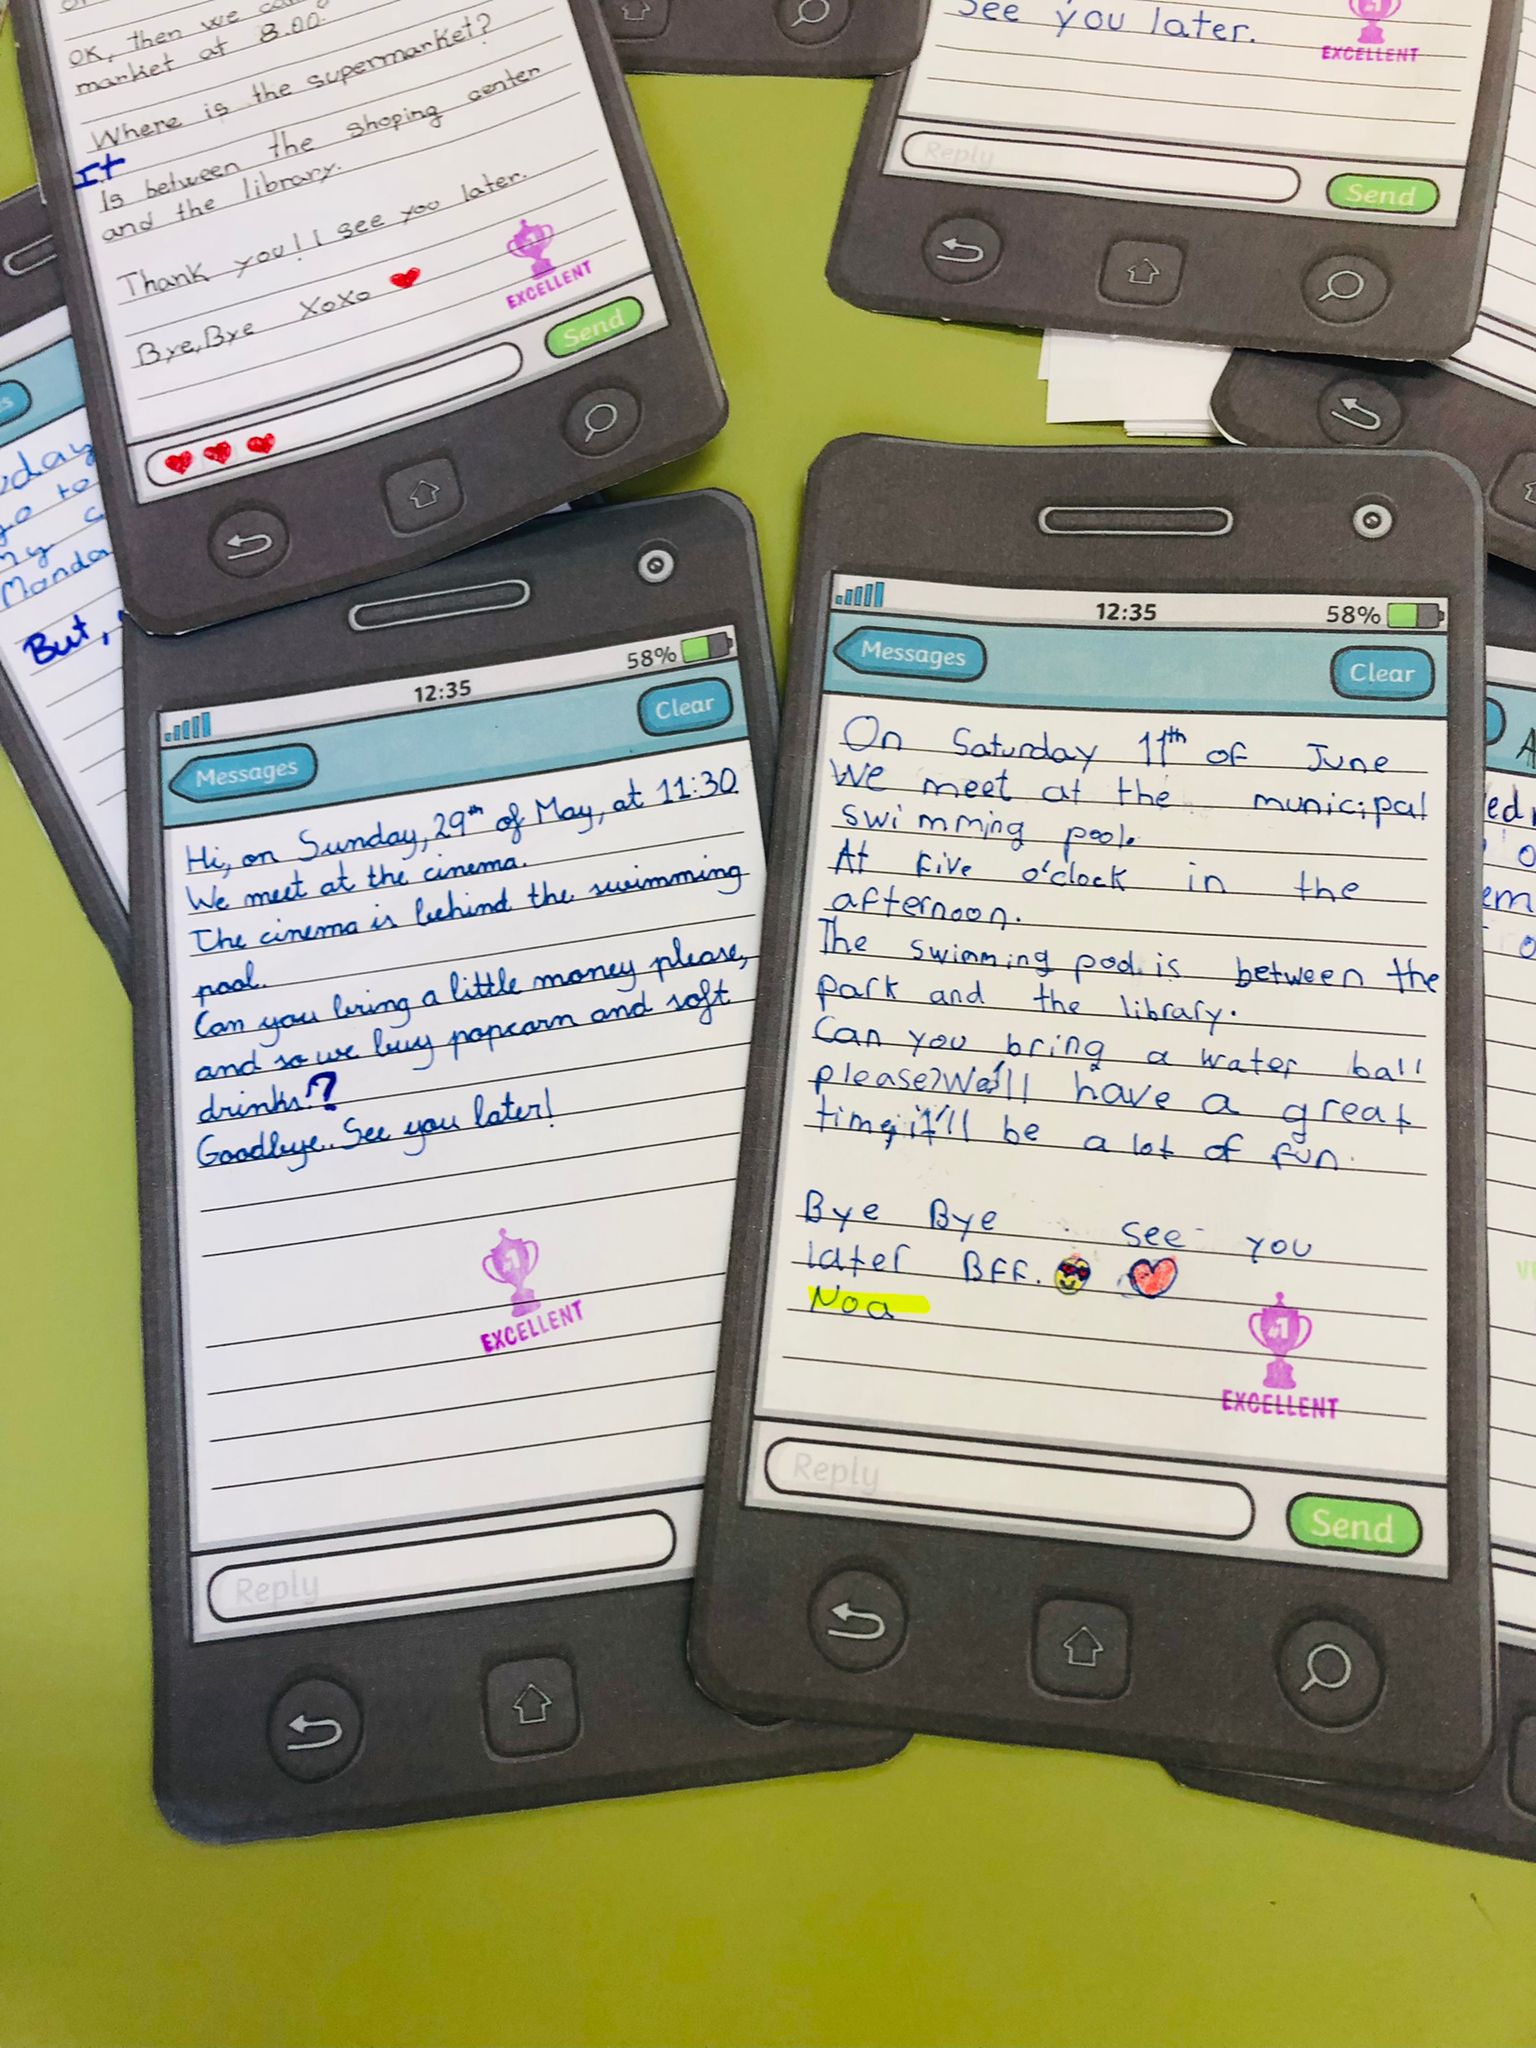 OK, then we
market at 8.00.
Where is the supermarket?
It
Is between the shoping center
and the library.
Thank you! I see you later.
Bye, Bye XoXo
EXCELLENT
Send
See you later.
EXCELLENT
Reply
Send
to
Manda
But,
12:35
58%
Messages
Clear
Hi, on Sunday, 29th of May, at 11:30
We meet at the cinema.
The cinema is behind the swimming
pool.
Can you bring a little money please,
and so we buy popcorn and soft
drinks?
Goodbye. See you later!
#1
EXCELLENT
Reply
12:35
58%
Messages
Clear
On Saturday 11th of June
We meet at the municipal
swimming pool.
At Five o'clock in the
afternoon.
The swimming pool is between the
park and the library.
Can you bring a water ball
please? We'll have a great
time, it'll be a lot of fun.
Bye Bye see you
later BFF.
Noa
#1
EXCELLENT
Reply
Send